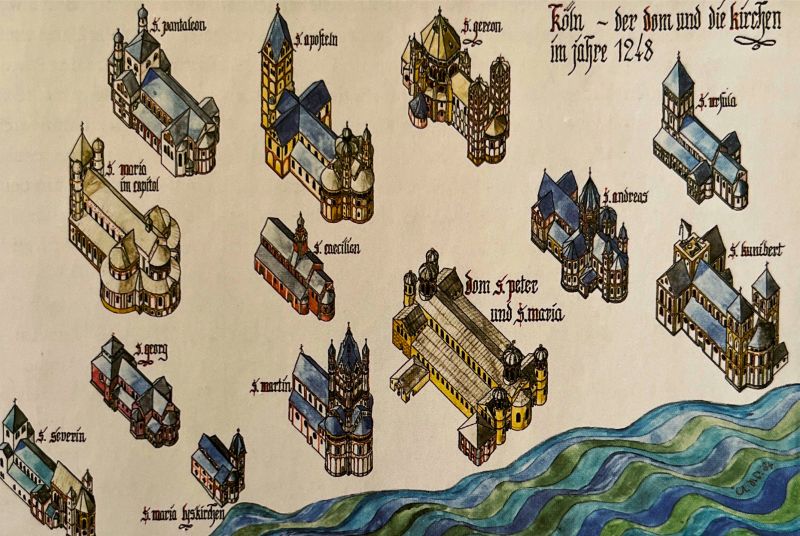 Köln ~ der dom und die kirchen
im jahre 1248
S. pantaleon
S. aposteln
S. gereon
S. ursula
S. maria
im capitol
S. caecilien
S. andreas
S. kunibert
dom S. peter
und S. maria
S. georg
S. martin
S. severin
S. maria lyskirchen